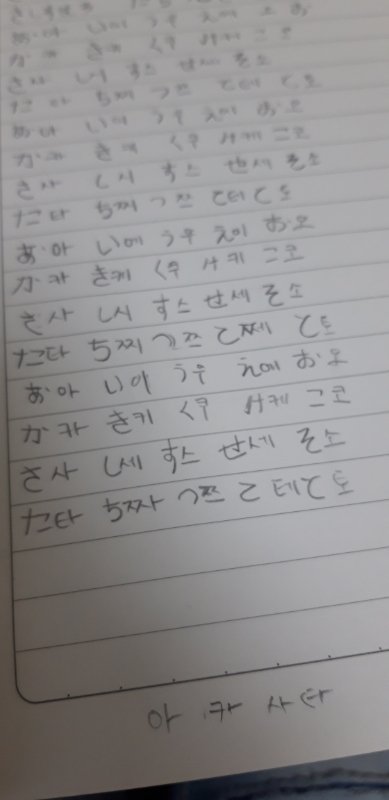 あ아 い이 う우 え에 お오
か카 き키 く쿠 け케 こ코
さ사 し시 す스 せ세 そ소
た타 ち찌 つ쯔 て테 と토
あ아 い이 う우 え에 お오
か카 き키 く쿠 け케 こ코
さ사 し시 す스 せ세 そ소
た타 ち찌 つ쯔 て테 と토
あ아 い에 う우 え이 お오
か카 き케 く쿠 け키 こ코
さ사 し시 す스 せ세 そ소
た타 ち찌 つ쯔 て쩨 と토
あ아 い이 う우 え에 お오
か카 き키 く쿠 け케 こ코
さ사 し세 す스 せ세 そ소
た타 ち찌 つ쯔 て테 と토
아 카 사 타